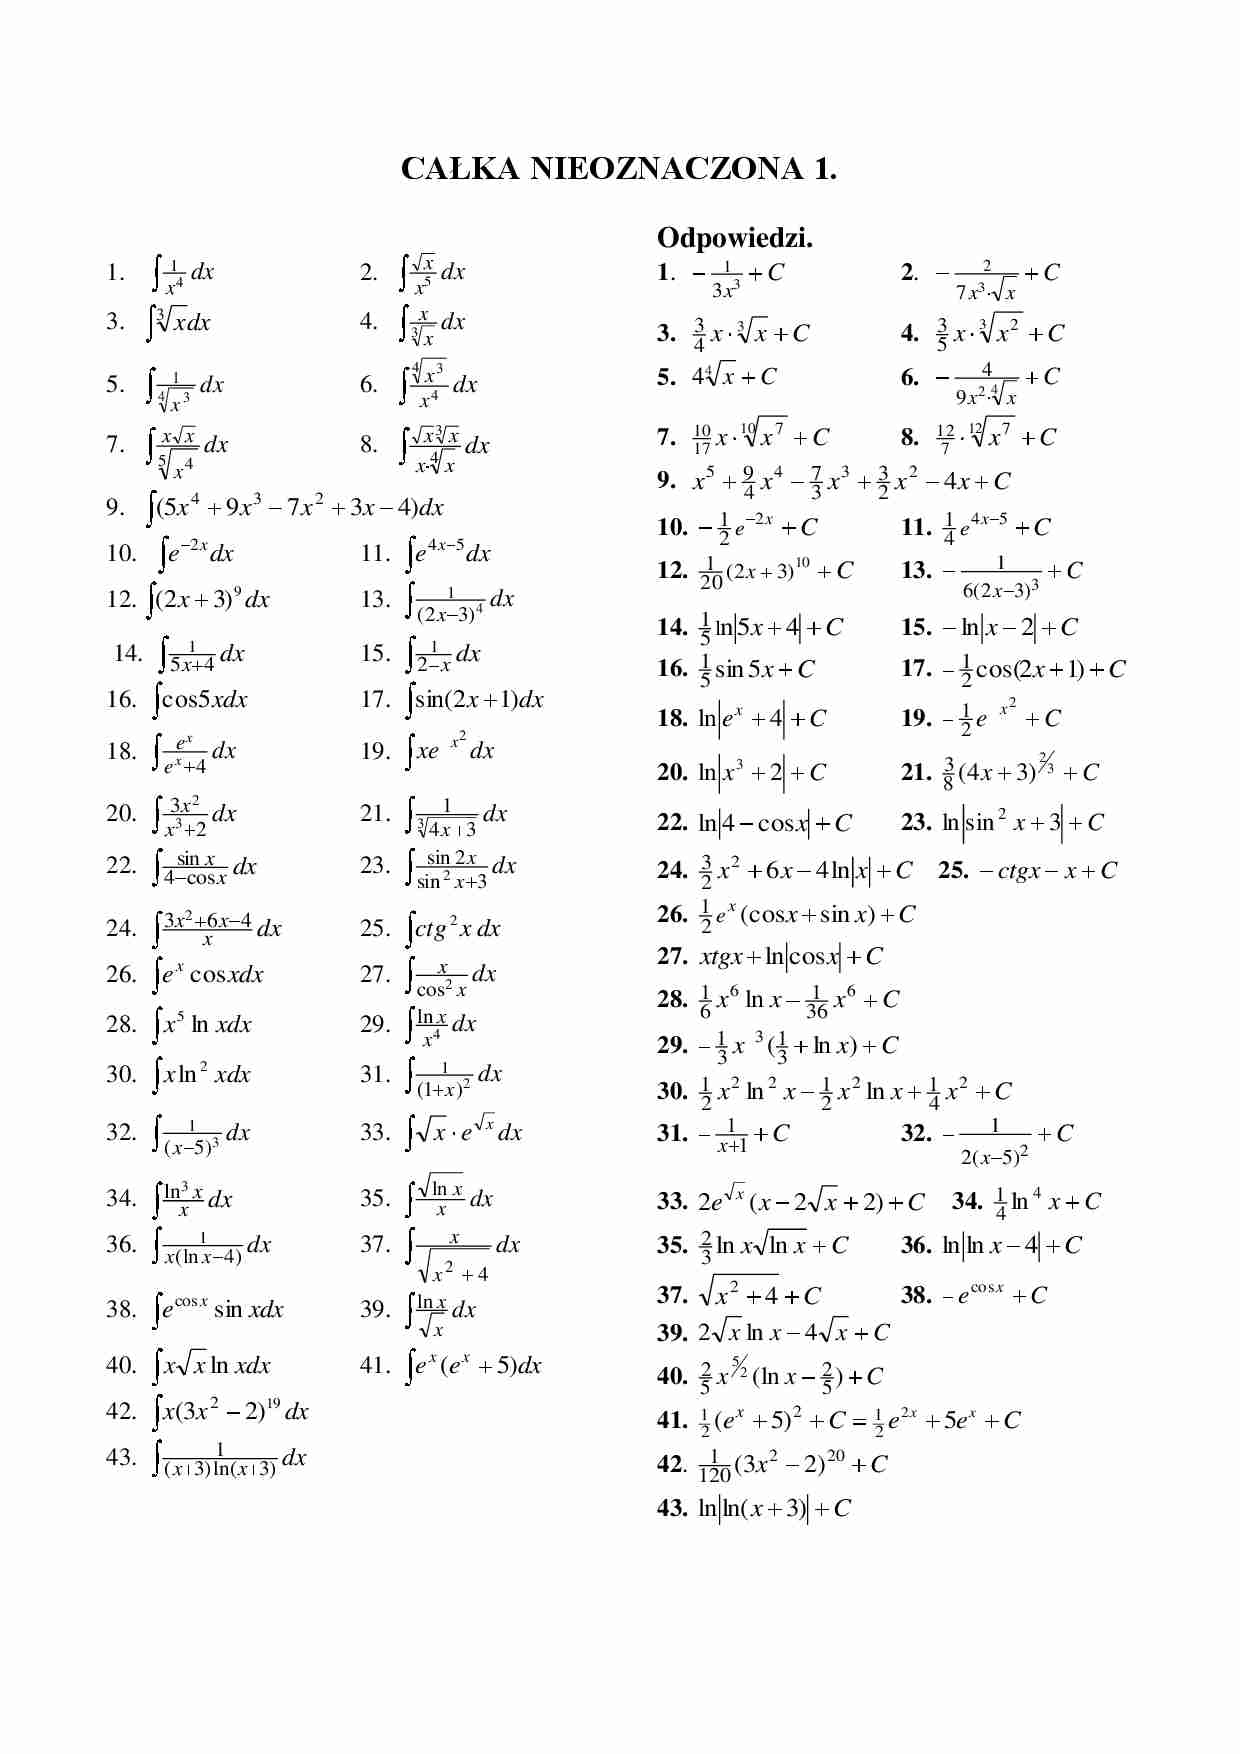 CAŁKA NIEOZNACZONA 1.
1. ∫ 1/x⁴ dx 2. ∫ √x/x⁵ dx
3. ∫ ∛x dx 4. ∫ x/∛x dx
5. ∫ 1/∜x³ dx 6. ∫ ∜x³/x⁴ dx
7. ∫ x√x/⁵√x⁴ dx 8. ∫ √x∛x/(x·∜x) dx
9. ∫(5x⁴ + 9x³ − 7x² + 3x − 4)dx
10. ∫e^(−2x) dx 11. ∫e^(4x−5) dx
12. ∫(2x + 3)⁹ dx 13. ∫ 1/(2x−3)⁴ dx
14. ∫ 1/(5x+4) dx 15. ∫ 1/(2−x) dx
16. ∫cos5xdx 17. ∫sin(2x + 1)dx
18. ∫ e^x/(e^x+4) dx 19. ∫xe x² dx
20. ∫ 3x²/(x³+2) dx 21. ∫ 1/∛(4x+3) dx
22. ∫ sin x/(4−cos x) dx 23. ∫ sin 2x/(sin² x+3) dx
24. ∫ (3x²+6x−4)/x dx 25. ∫ctg² x dx
26. ∫e^x cosxdx 27. ∫ x/cos² x dx
28. ∫x⁵ ln xdx 29. ∫ ln x/x⁴ dx
30. ∫x ln² xdx 31. ∫ 1/(1+x)² dx
32. ∫ 1/(x−5)³ dx 33. ∫ √x · e^√x dx
34. ∫ ln³ x/x dx 35. ∫ √(ln x)/x dx
36. ∫ 1/(x(ln x−4)) dx 37. ∫ x/√(x² + 4) dx
38. ∫e^(cos x) sin xdx 39. ∫ ln x/√x dx
40. ∫x√x ln xdx 41. ∫e^x (e^x + 5)dx
42. ∫x(3x² − 2)¹⁹ dx
43. ∫ 1/((x+3)ln(x+3)) dx
Odpowiedzi.
1. − 1/(3x³) + C 2. − 2/(7x³·√x) + C
3. 3/4 x · ∛x + C 4. 3/5 x · ∛x² + C
5. 4∜x + C 6. − 4/(9x²·∜x) + C
7. 10/17 x · ¹⁰√x⁷ + C 8. 12/7 · ¹²√x⁷ + C
9. x⁵ + 9/4 x⁴ − 7/3 x³ + 3/2 x² − 4x + C
10. − 1/2 e^(−2x) + C 11. 1/4 e^(4x−5) + C
12. 1/20 (2x + 3)¹⁰ + C 13. − 1/(6(2x−3)³) + C
14. 1/5 ln|5x + 4| + C 15. − ln|x − 2| + C
16. 1/5 sin 5x + C 17. − 1/2 cos(2x + 1) + C
18. ln|e^x + 4| + C 19. − 1/2 e x² + C
20. ln|x³ + 2| + C 21. 3/8 (4x + 3)^(2/3) + C
22. ln|4 − cosx| + C 23. ln|sin² x + 3| + C
24. 3/2 x² + 6x − 4 ln|x| + C 25. − ctgx − x + C
26. 1/2 e^x (cosx + sin x) + C
27. xtgx + ln|cosx| + C
28. 1/6 x⁶ ln x − 1/36 x⁶ + C
29. − 1/3 x ³ (1/3 + ln x) + C
30. 1/2 x² ln² x − 1/2 x² ln x + 1/4 x² + C
31. − 1/(x+1) + C 32. − 1/(2(x−5)²) + C
33. 2e^√x (x − 2√x + 2) + C 34. 1/4 ln⁴ x + C
35. 2/3 ln x√(ln x) + C 36. ln|ln x − 4| + C
37. √(x² + 4) + C 38. − e^(cos x) + C
39. 2√x ln x − 4√x + C
40. 2/5 x^(5/2) (ln x − 2/5) + C
41. 1/2 (e^x + 5)² + C = 1/2 e^(2x) + 5e^x + C
42. 1/120 (3x² − 2)²⁰ + C
43. ln|ln(x + 3)| + C